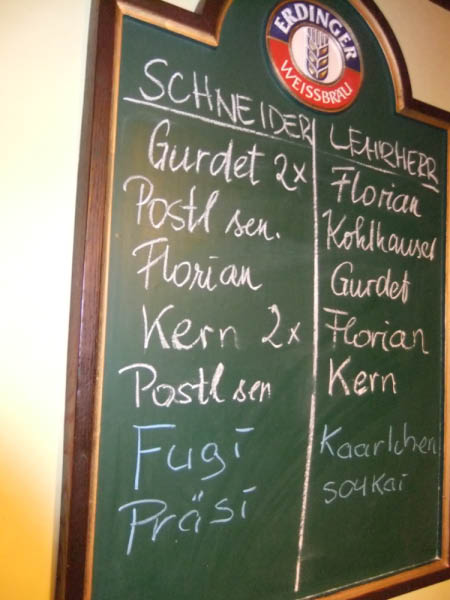 ERDINGER
WEISSBRÄU
SCHNEIDER
Gurdet 2x
Postl sen.
Florian
Kern 2x
Postl sen
Fugi
Präsi
LEHRHERR
Florian
Kohlhauser
Gurdet
Florian
Kern
Kaarlchen
soukai